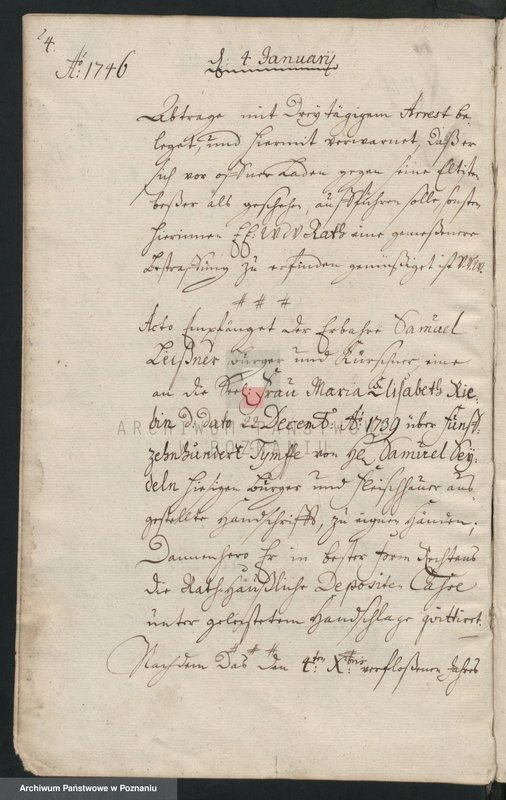 24.
Aō: 1746
d: 4 Januarij
Abtrage mit dreytägigem Arrest be
leget, und hiermit verwarnet, daß er
sich vor offner Laden gegen seine Eltisten
beßer als geschehen, aufführen solle, sonsten
hierinnen E.E. Rath eine gemeßnere
Bestraffung zu erfinden gemüßiget ist
# # #
Acto Empfänget der Erbahre Samuel
Leißner Bürger und Kürschner eine
an die Seel: Frau Maria Elisabeth Rie-
bin d. dato 22 Decembr: Aō: 1739 über funff-
zehnhundert Tympffe von H. Samuel Sey-
deln hiesigen Bürger und Fleischhauer aus-
gestellte Handschrifft, zu eignen Händen;
Dannenhero Er in bester form Rechtens
die Rath-Häußliche Depositen Casse
unter geleistetem Handschlage qvittiret.
# # #
Nachdem das den 4ten Xbris verfloßenen Jahres
ARCHIWUM PAŃSTWOWE
W POZNANIU
Archiwum Państwowe w Poznaniu